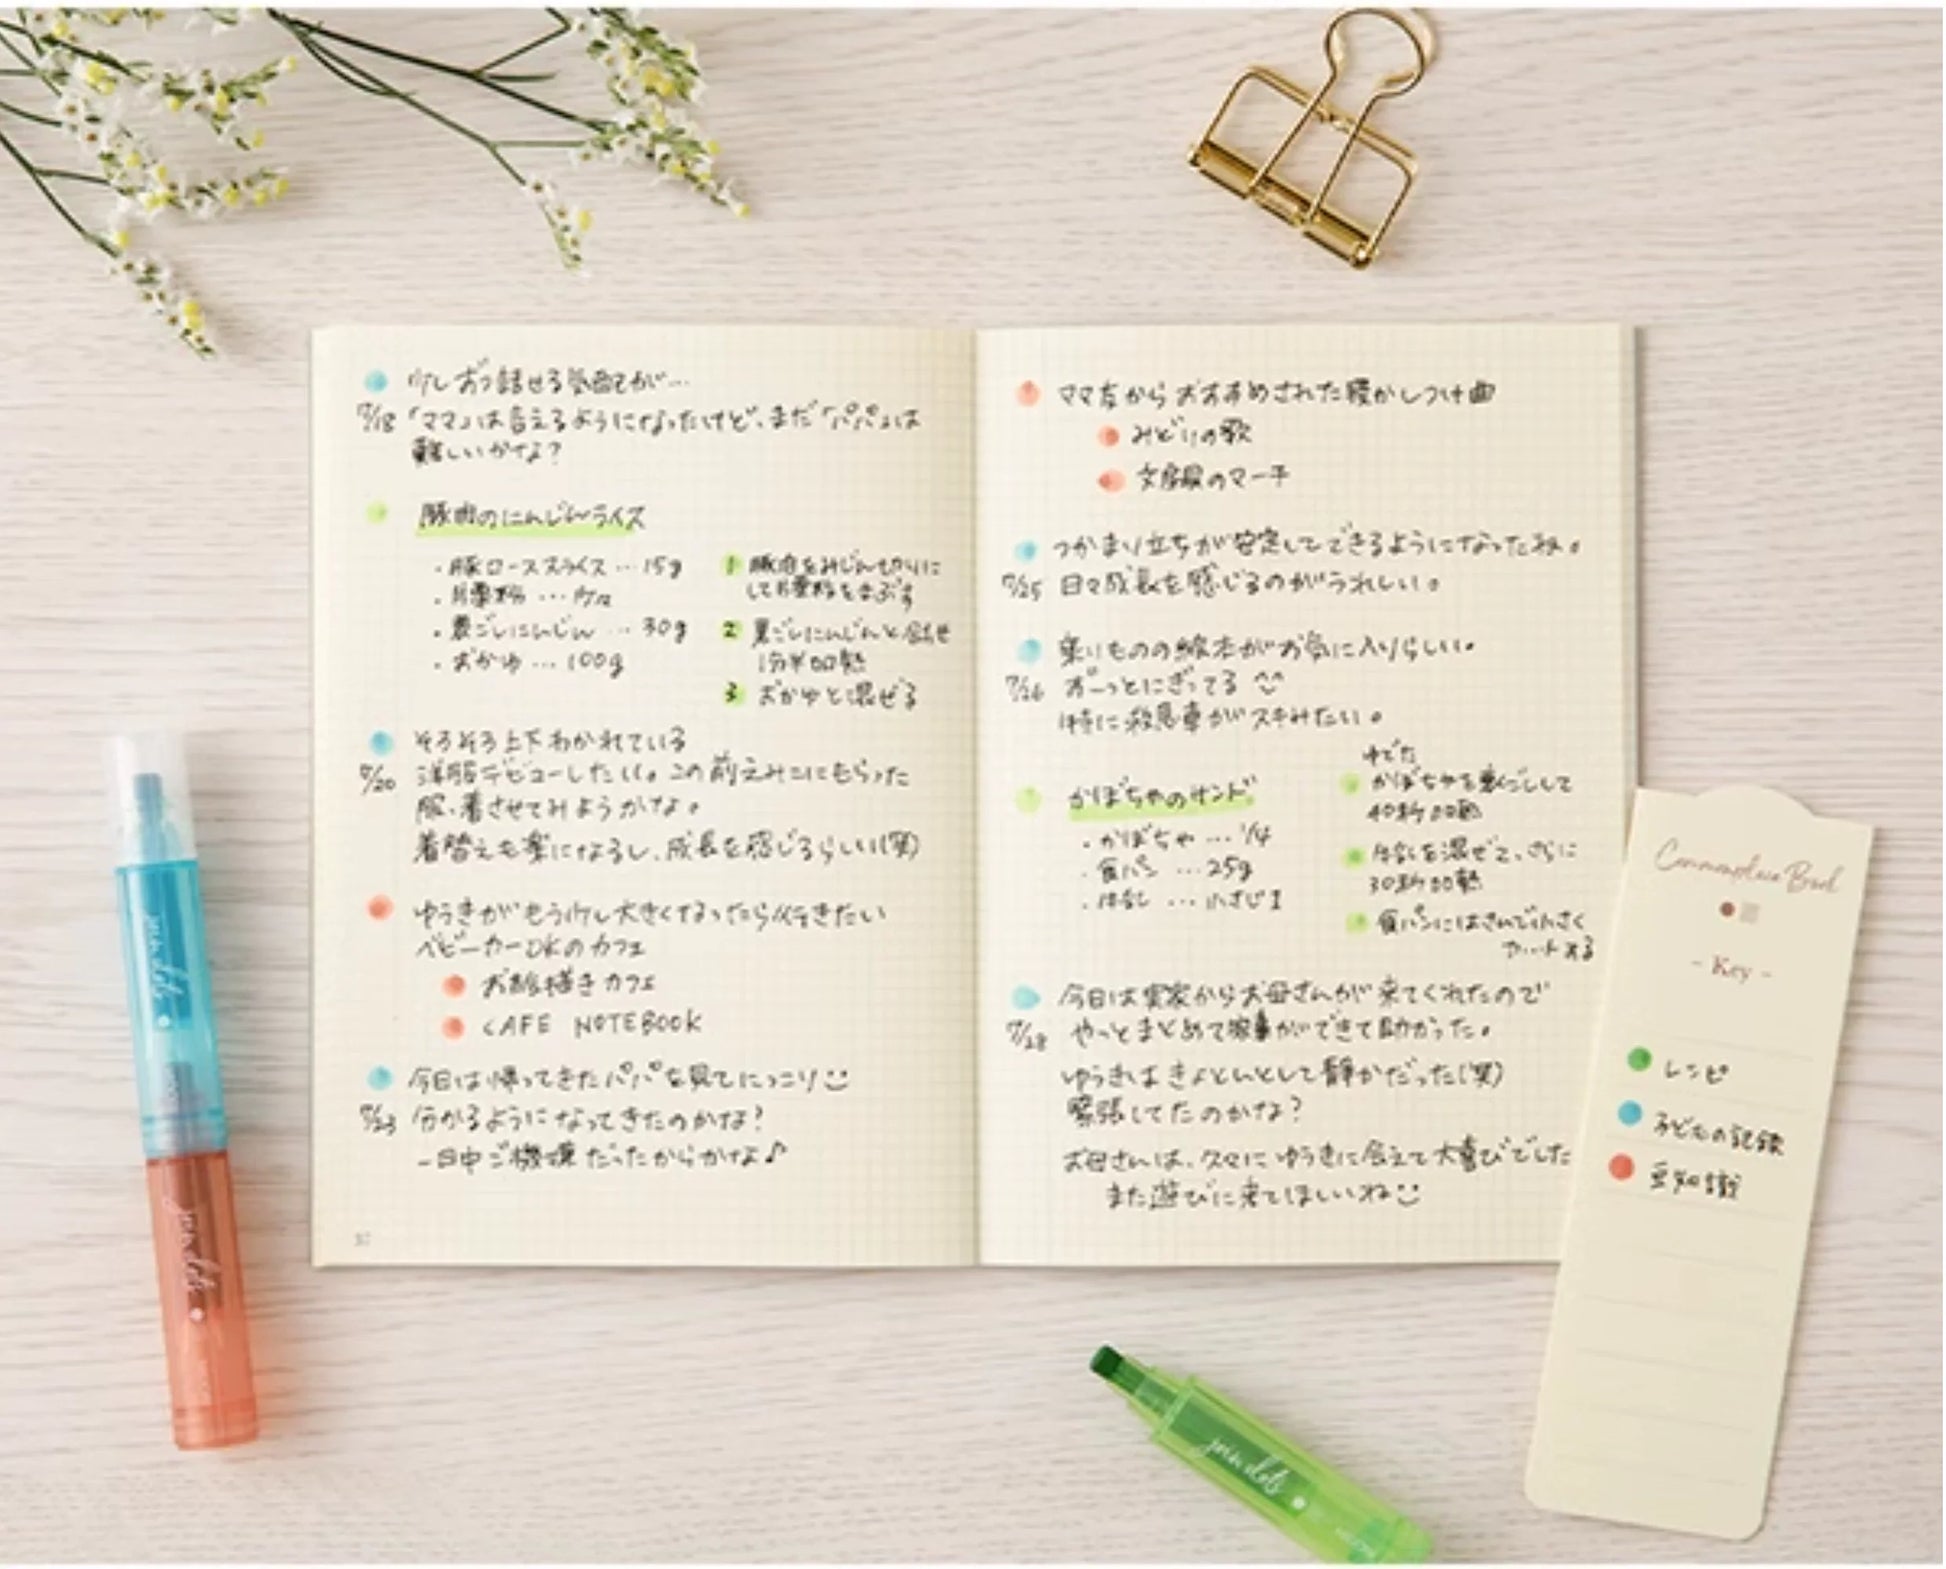 少しずつ話せる気配てが…
7/18 「ママ」は言えるようになったけど、まだ「パパ」は
難しいかな？
豚肉のにんじんライス
・豚ローススライス … 15g
・片栗粉 …
・裏ごしにんじん … 30g
・おかゆ … 100g
1 豚肉をみじん切りに
して片栗粉をまぶす
2 裏ごしにんじんと合せ
1分半加熱
3 おかゆと混ぜる
そろそろ上下わかれている
7/20 洋服デビューしたい。この前えみこにもらった
服、着させてみようかな。
着替えも楽になるし、成長を感じるらしい(笑)
ゆうきがもう少し大きくなったら行きたい
ベビーカーOKのカフェ
お絵描きカフェ
CAFE NOTEBOOK
今日は帰ってきたパパを見てにっこり
7/23 分かるようになってきたのかな？
一日中ご機嫌だったからかな♪
ママ友からおすすめされた寝かしつけ曲
みどりの歌
文房具のマーチ
つかまり立ちが安定してできるようになったね。
7/25 日々成長を感じるのがうれしい。
乗りものの絵本がお気に入りらしい。
7/26 ずーっとにぎってる ^^
特に救急車がスキみたい。
かぼちゃのサンド
・かぼちゃ … 1/4
・食パン … 25g
・牛乳 … 小さじ1
ゆでた
かぼちゃを裏ごしして
40秒加熱
牛乳を混ぜて、さらに
30秒加熱
食パンにはさんで小さく
カットする
今日は実家からお母さんが来てくれたので
7/28 やっとまとめて家事ができて助かった。
ゆうきはきょとんとして静かだった(笑)
緊張してたのかな？
お母さんは、久々にゆうきに会えて大喜びでした
また遊びに来てほしいね
Commonplace Book
- Key -
レシピ
子どもの記録
豆知識
pin dots
pin dots
pin dots